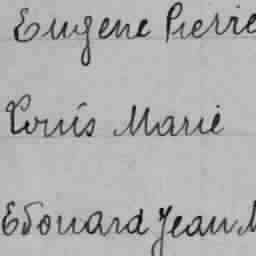 Eugene Pierre
Louis Marie
Edouard Jean M